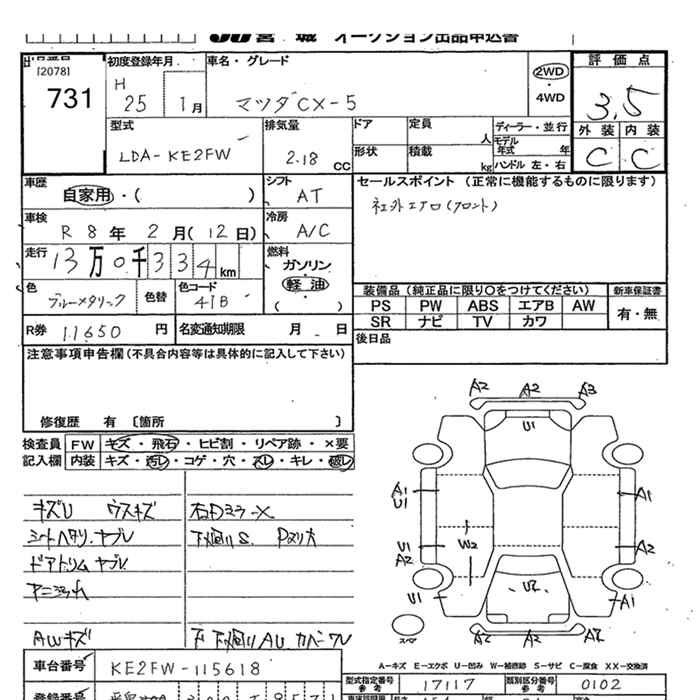 JU 宮城 オークション出品申込書
出品番号
[2078]
731
初度登録年月
H
25 1月
車名・グレード
マツダCX-5
2WD
・
4WD
評価点
3.5
外装 内装
C C
型式
LDA-KE2FW
排気量
2.18 CC
ドア
定員 人
ディーラー・並行
モデル年式 年
形状
積載 kg
ハンドル 左・右
車歴
自家用・( )
シフト
AT
セールスポイント (正常に機能するものに限ります)
社外エアロ(フロント)
車検
R 8年 2月(12日)
冷房
A/C
走行
13万0千334km
燃料
ガソリン
軽油
( )
色
ブルーメタリック
色替
色コード
41B
装備品 (純正品に限り○をつけてください)
新車保証書
PS PW ABS エアB AW
SR ナビ TV カワ
有・無
R券 11650 円
名変通知期限 月 日
後日品
注意事項申告欄(不具合内容等は具体的に記入して下さい)
修復歴 有 〔箇所 〕
検査員
記入欄
FW キズ・飛石・ヒビ割・リペア跡・×要
内装 キズ・汚レ・コゲ・穴・スレ・キレ・破レ
キズU ウスキズ
シートヘタリ・ヤブレ
ドアトリムヤブレ
AWキズ
石DミラーX
下廻りS
下下廻りAU カバーワレ
A2 A2 A3
U1
A1
U1
A1
U1
A2
W2
A2
U1
U2
A1
A2 A2 A2
スペア
A−キズ E−エクボ U−凹み W−補修跡 S−サビ C−腐食 XX−交換済
車台番号
KE2FW-115618
型式指定番号
参考
17117
類別区分番号
参考
0102
登録番号